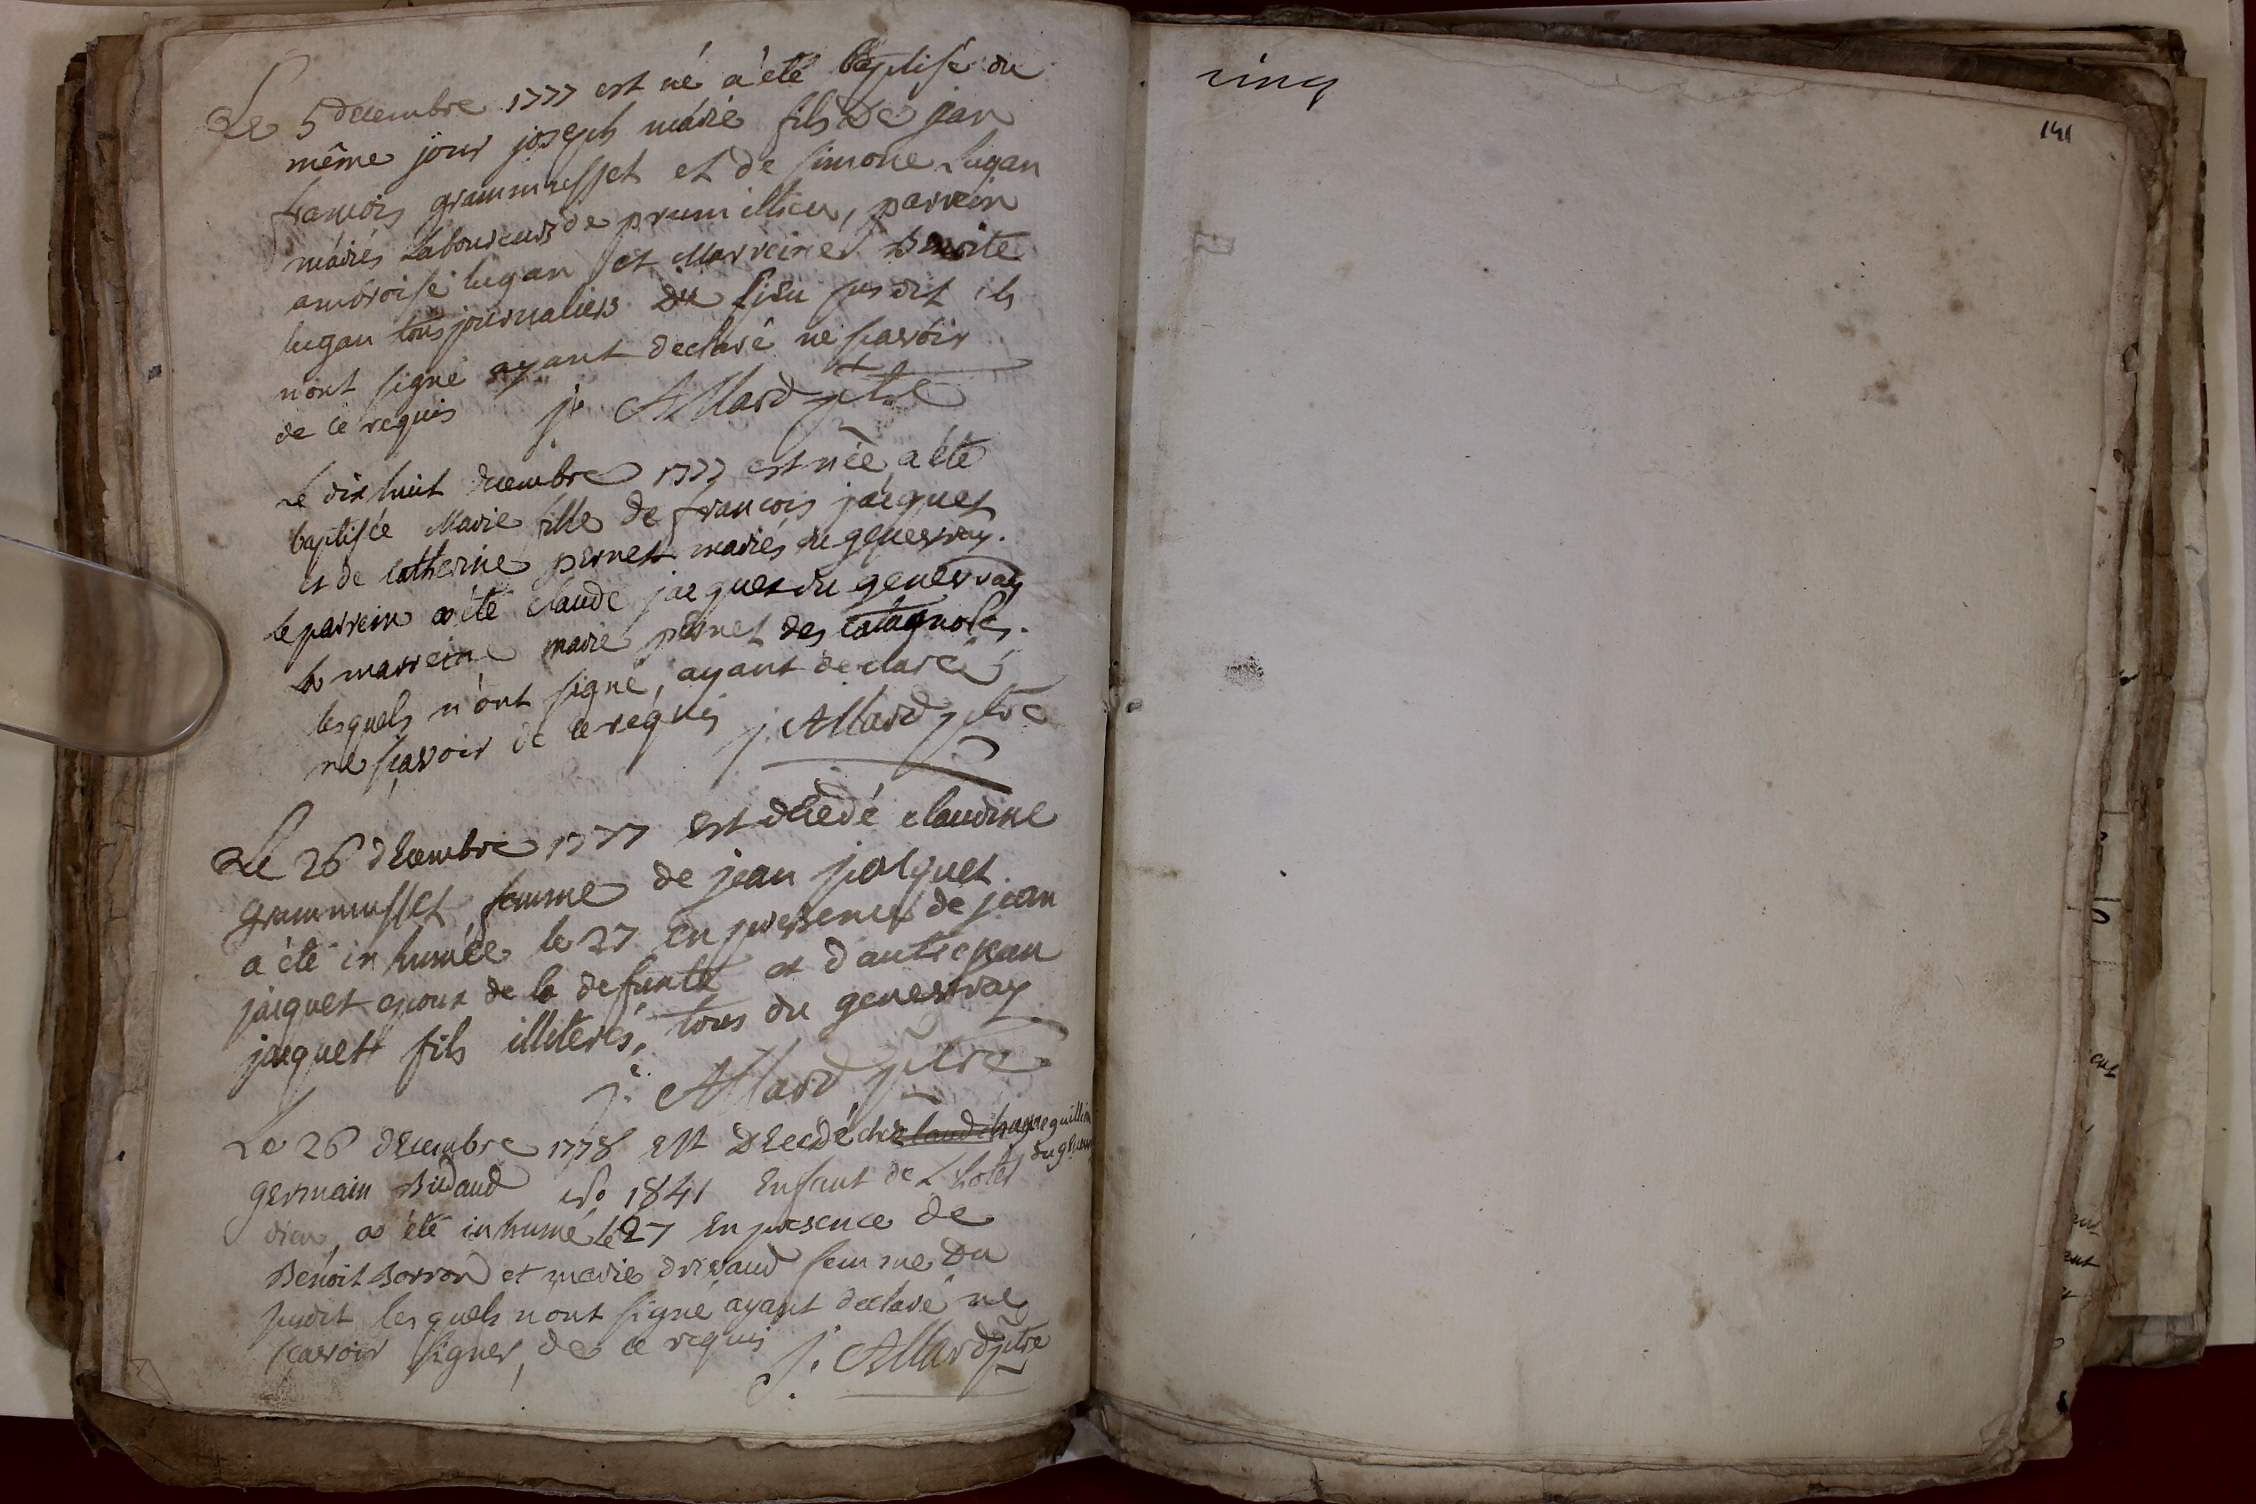 Le 5 decembre 1777 est né a été baptisé du
même jour joseph marie fils de jan
francois grammusset et de simone lugan
mariés laboureurs de prumillieu, parrein
ambroise lugan et Marreine Benoite
lugan tous journaliers du lieu susdit ils
n'ont signé ayant declaré ne scavoir
de ce requis j. Allard ptre
Le dix huit decembre 1777 est née a été
baptisée Marie fille de francois jacquet
et de catherine pernet mariés du genevray.
le parrein a été claude jacquet du genevray
la marreine marie pernet des
lesquels n'ont signé, ayant declaré
ne sçavoir de ce requis j. Allard ptre
Le 26 decembre 1777 est décedé claudine
grammusset femme de jean jacquet
a été inhumée le 27 en presence de jean
jacquet epoux de la defunte et d'autre jean
jacquet fils illiterés, tous du genevray
j. Allard ptre
Le 26 decembre 1778 est decedé chez
germain Bidaud No 1841 enfant de L'hotel
dieu, a été inhumé le 27 en presence de
Benoit Borron et marie drivaud femme du
susdit lesquels n'ont signé ayant declaré ne
scavoir signer, de ce requis j. Allard ptre
cinq
141